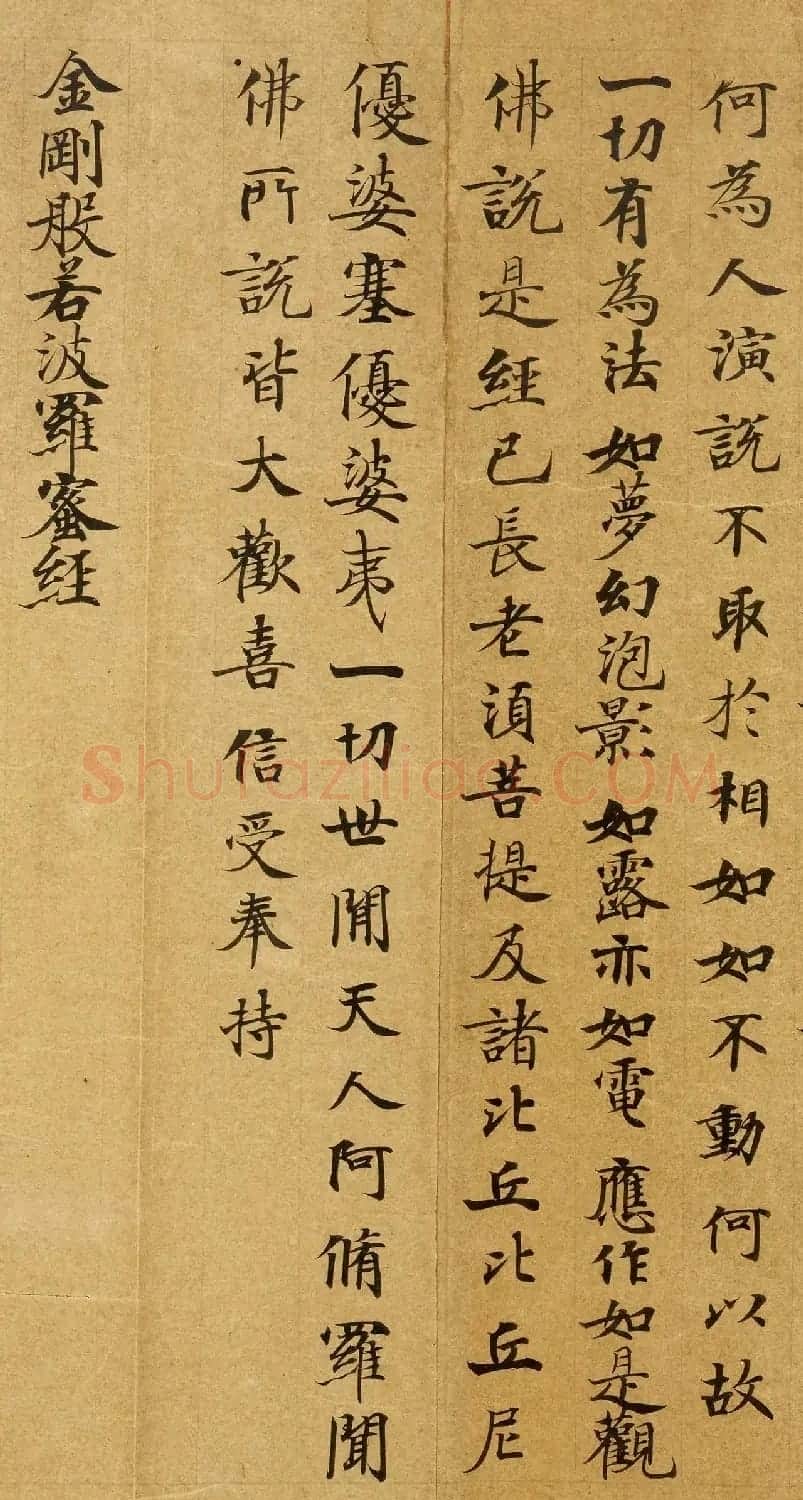 何為人演說不取於相如如不動何以故
一切有為法如夢幻泡影如露亦如電應作如是觀
佛說是經已長老須菩提及諸比丘比丘尼
優婆塞優婆夷一切世間天人阿脩羅聞
佛所說皆大歡喜信受奉持
金剛般若波羅蜜經
Shufaziliao.COM